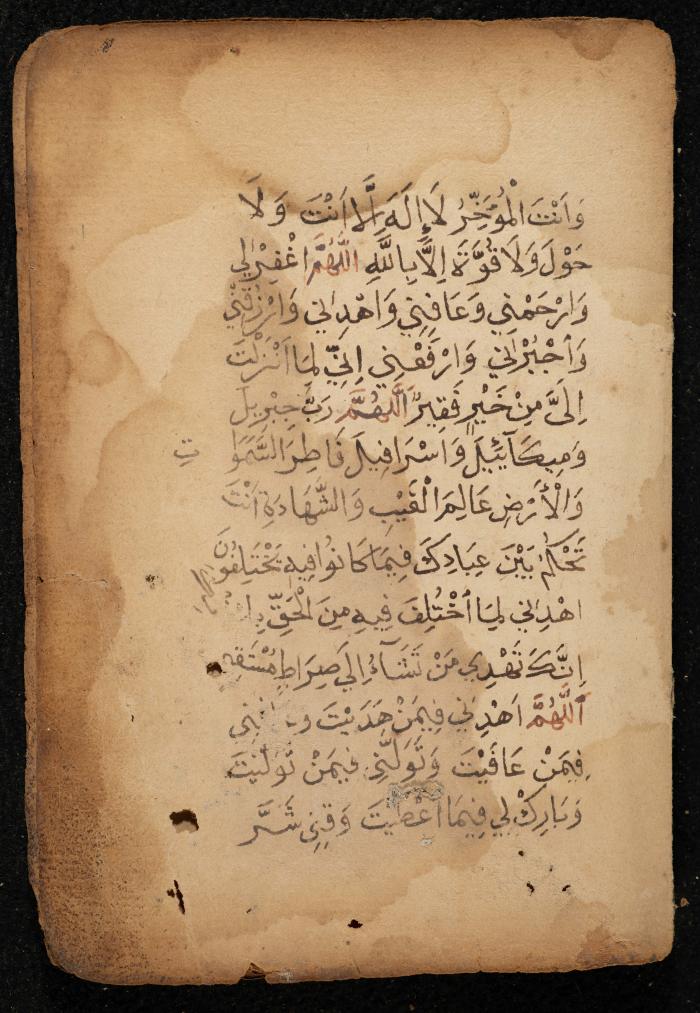 وَاَنْتَ الْمُؤَخِّرُ لَا إِلَهَ اِلَّا اَنْتَ وَلَا
حَوْلَ وَلَا قُوَّةَ اِلَّا بِاللَّهِ اللَّهُمَّ اغْفِرْ لِي
وَارْحَمْنِي وَعَافِنِي وَاهْدِنِي وَارْزُقْنِي
وَاجْبُرْنِي وَارْفَعْنِي اِنِّي لِمَا اَنْزَلْتَ
اِلَيَّ مِنْ خَيْرٍ فَقِيرٌ اَللَّهُمَّ رَبَّ جِبْرِيلَ
وَمِيكَآئِيلَ وَاِسْرَافِيلَ فَاطِرَ السَّمَوَاتِ
وَالْأَرْضِ عَالِمَ الْغَيْبِ وَالشَّهَادَةِ اَنْتَ
تَحْكُمُ بَيْنَ عِبَادِكَ فِيمَا كَانُوا فِيهِ يَخْتَلِفُونَ
اهْدِنِي لِمَا اخْتُلِفَ فِيهِ مِنَ الْحَقِّ
اِنَّكَ تَهْدِي مَنْ تَشَآءُ اِلَى صِرَاطٍ مُسْتَقِيمٍ
اَللَّهُمَّ اهْدِنِي فِيمَنْ هَدَيْتَ
فِيمَنْ عَافَيْتَ وَتَوَلَّنِي فِيمَنْ تَوَلَّيْتَ
وَبَارِكْ لِي فِيمَا اَعْطَيْتَ وَقِنِي شَرَّ